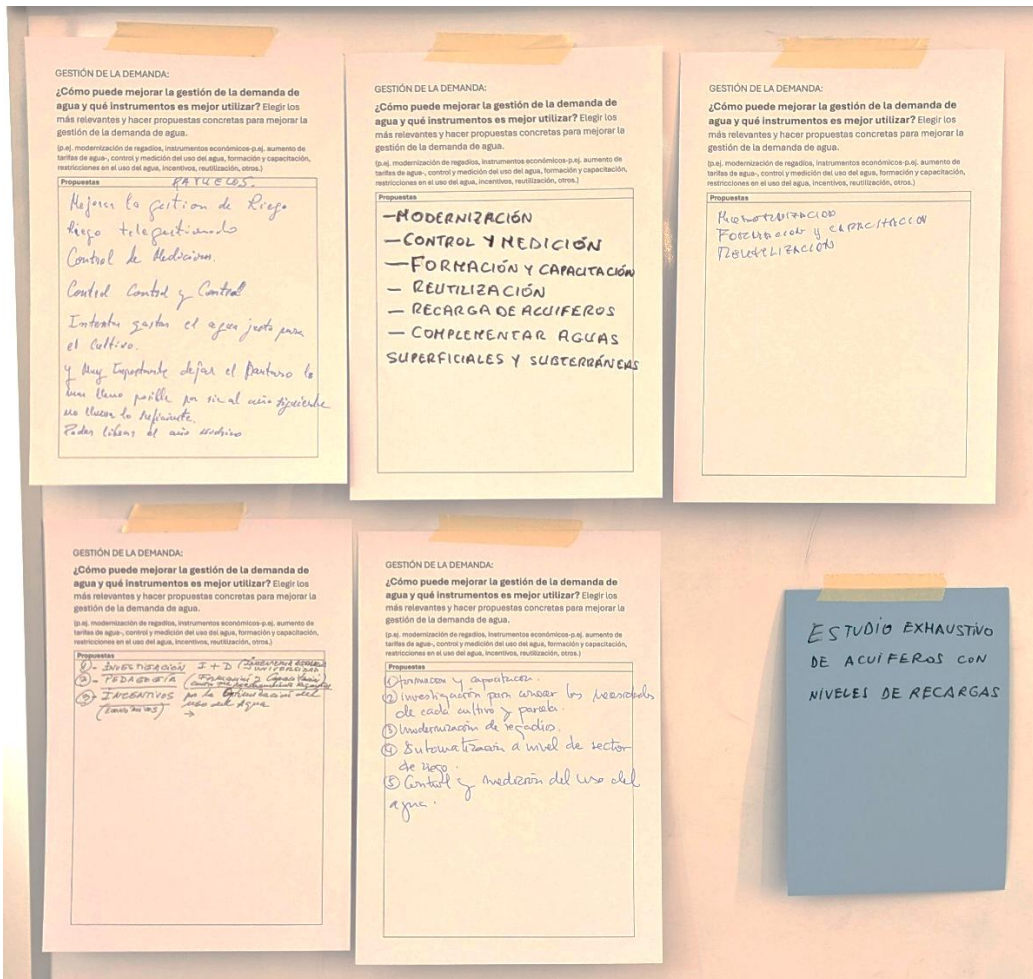 GESTIÓN DE LA DEMANDA:
¿Cómo puede mejorar la gestión de la demanda de
agua y qué instrumentos es mejor utilizar? Elegir los
más relevantes y hacer propuestas concretas para mejorar la
gestión de la demanda de agua.
(p.ej. modernización de regadíos, instrumentos económicos-p.ej. aumento de
tarifas de agua-, control y medición del uso del agua, formación y capacitación,
restricciones en el uso del agua, incentivos, reutilización, otros.)
Propuestas
Mejorar la gestion de Riego
Riego telegestionado
Control de Mediciones.
Control Control y Control
Intentar gastar el agua justa para
el Cultivo.
y Muy Importante dejar el Pantano lo
mas lleno posible por si al año siguiente
no llueve lo suficiente.
Poder el año
GESTIÓN DE LA DEMANDA:
¿Cómo puede mejorar la gestión de la demanda de
agua y qué instrumentos es mejor utilizar? Elegir los
más relevantes y hacer propuestas concretas para mejorar la
gestión de la demanda de agua.
(p.ej. modernización de regadíos, instrumentos económicos-p.ej. aumento de
tarifas de agua-, control y medición del uso del agua, formación y capacitación,
restricciones en el uso del agua, incentivos, reutilización, otros.)
Propuestas
—MODERNIZACIÓN
—CONTROL Y MEDICIÓN
—FORMACIÓN Y CAPACITACIÓN
— REUTILIZACIÓN
— RECARGA DE ACUIFEROS
— COMPLEMENTAR AGUAS
SUPERFICIALES Y SUBTERRÁNEAS
GESTIÓN DE LA DEMANDA:
¿Cómo puede mejorar la gestión de la demanda de
agua y qué instrumentos es mejor utilizar? Elegir los
más relevantes y hacer propuestas concretas para mejorar la
gestión de la demanda de agua.
(p.ej. modernización de regadíos, instrumentos económicos-p.ej. aumento de
tarifas de agua-, control y medición del uso del agua, formación y capacitación,
restricciones en el uso del agua, incentivos, reutilización, otros.)
Propuestas
FORMACION Y CAPACITACION
REUTILIZACIÓN
GESTIÓN DE LA DEMANDA:
¿Cómo puede mejorar la gestión de la demanda de
agua y qué instrumentos es mejor utilizar? Elegir los
más relevantes y hacer propuestas concretas para mejorar la
gestión de la demanda de agua.
(p.ej. modernización de regadíos, instrumentos económicos-p.ej. aumento de
tarifas de agua-, control y medición del uso del agua, formación y capacitación,
restricciones en el uso del agua, incentivos, reutilización, otros.)
Propuestas
①- INVESTIGACIÓN I+D (INGENIERIA UNIVERSIDAD
②- PEDAGOGÍA (Formación y Capacitación
③- INCENTIVOS por la del
uso del Agua
→
GESTIÓN DE LA DEMANDA:
¿Cómo puede mejorar la gestión de la demanda de
agua y qué instrumentos es mejor utilizar? Elegir los
más relevantes y hacer propuestas concretas para mejorar la
gestión de la demanda de agua.
(p.ej. modernización de regadíos, instrumentos económicos-p.ej. aumento de
tarifas de agua-, control y medición del uso del agua, formación y capacitación,
restricciones en el uso del agua, incentivos, reutilización, otros.)
Propuestas
① formacion y capacitacion.
② investigación para conocer las necesidades
de cada cultivo y parcela.
③ modernización de regadíos.
④ Automatización a nivel de sector
de riego.
⑤ Control y medición del uso del
agua.
ESTUDIO EXHAUSTIVO
DE ACUÍFEROS CON
NIVELES DE RECARGAS